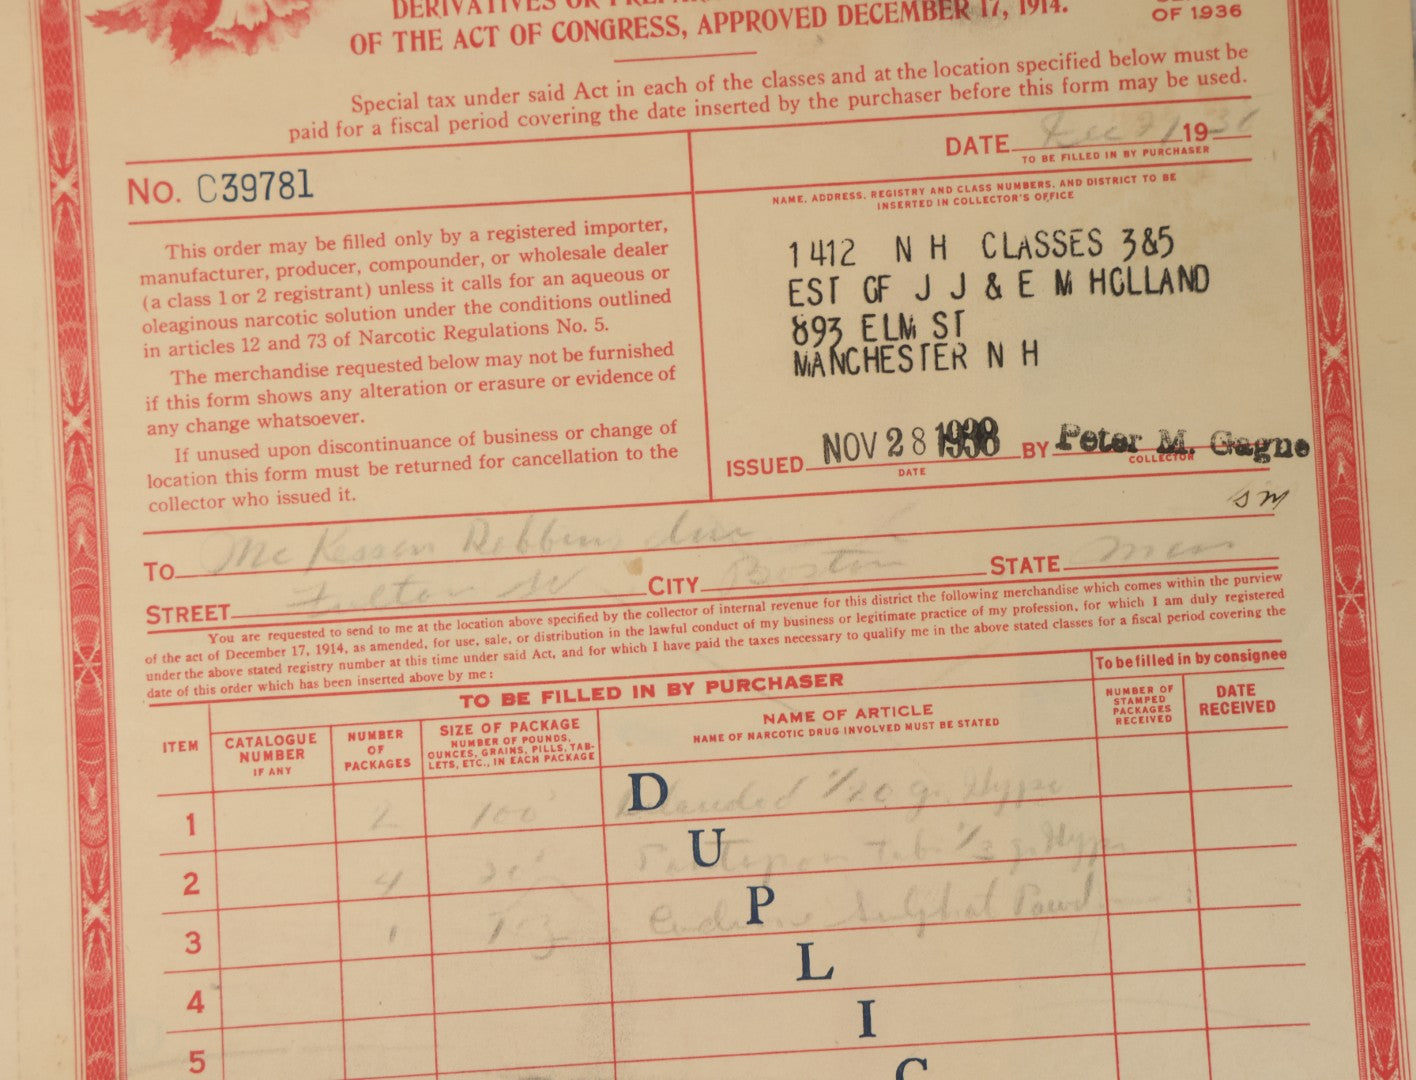 OF THE ACT OF CONGRESS, APPROVED DECEMBER 17, 1914.
OF 1936
Special tax under said Act in each of the classes and at the location specified below must be
paid for a fiscal period covering the date inserted by the purchaser before this form may be used.
DATE Dec 19
TO BE FILLED IN BY PURCHASER
No. C39781
NAME, ADDRESS, REGISTRY AND CLASS NUMBERS, AND DISTRICT TO BE
INSERTED IN COLLECTOR'S OFFICE
This order may be filled only by a registered importer,
manufacturer, producer, compounder, or wholesale dealer
(a class 1 or 2 registrant) unless it calls for an aqueous or
oleaginous narcotic solution under the conditions outlined
in articles 12 and 73 of Narcotic Regulations No. 5.
The merchandise requested below may not be furnished
if this form shows any alteration or erasure or evidence of
any change whatsoever.
If unused upon discontinuance of business or change of
location this form must be returned for cancellation to the
collector who issued it.
1412 N H CLASSES 3&5
EST OF J J & E M HOLLAND
893 ELM ST
MANCHESTER N H
ISSUED NOV 28 1938 BY Peter M. Gagne
DATE
COLLECTOR
SM
TO Mc Kesson Robbins
STREET Fulton CITY Boston STATE Mass
You are requested to send to me at the location above specified by the collector of internal revenue for this district the following merchandise which comes within the purview
of the act of December 17, 1914, as amended, for use, sale, or distribution in the lawful conduct of my business or legitimate practice of my profession, for which I am duly registered
under the above stated registry number at this time under said Act, and for which I have paid the taxes necessary to qualify me in the above stated classes for a fiscal period covering the
date of this order which has been inserted above by me:
TO BE FILLED IN BY PURCHASER
To be filled in by consignee
ITEM
CATALOGUE
NUMBER
IF ANY
NUMBER
OF
PACKAGES
SIZE OF PACKAGE
NUMBER OF POUNDS,
OUNCES, GRAINS, PILLS, TAB-
LETS, ETC., IN EACH PACKAGE
NAME OF ARTICLE
NAME OF NARCOTIC DRUG INVOLVED MUST BE STATED
NUMBER OF
STAMPED
PACKAGES
RECEIVED
DATE
RECEIVED
1 2 100' Dilaudid 1/20 gr Hypo
2 4 20' Pantopon tabs 1/3 gr Hypo
3 1 Codeine Sulphate Powd
4
5
D
U
P
L
I
C